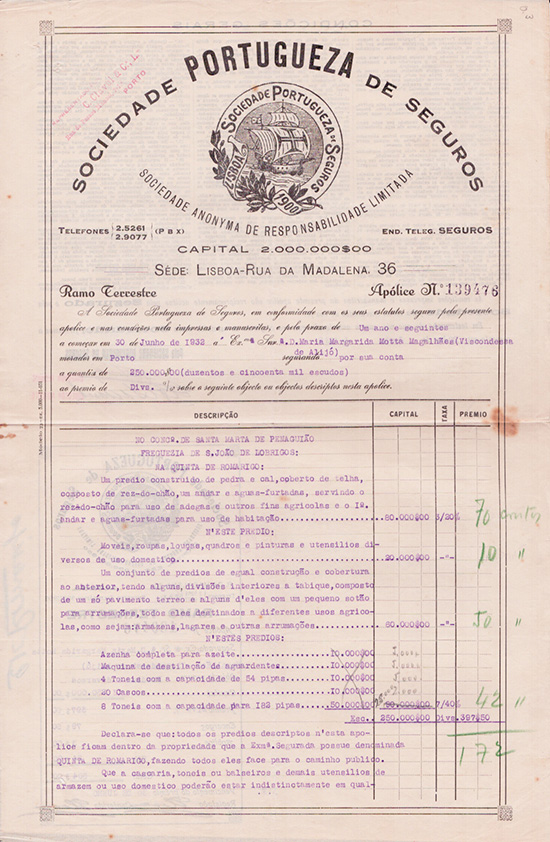 SOCIEDADE PORTUGUEZA DE SEGUROS
SOCIEDADE PORTUGUEZA DE SEGUROS
LISBOA 1900
SOCIEDADE ANONYMA DE RESPONSABILIDADE LIMITADA
PORTO
TELEFONES { 2.5261 2.9077 } (P B X)
END. TELEG. SEGUROS
CAPITAL 2.000.000$00
SÉDE: LISBOA-RUA DA MADALENA, 36
Ramo Terrestre
Apólice N.º 139478
A Sociedade Portugueza de Seguros, em conformidade com os seus estatutos segura pela presente
apolice e nas condições nela impressas e manuscritas, e pelo prazo de Um ano e seguintes
a começar em 30 de Junho de 1932 a Ex.ma Snr.a D. Maria Margarida Motta Magalhães (Viscondessa
de Alijó)
morador em Porto segurando por sua conta
a quantia de 250.000$00 (duzentos e cincoenta mil escudos)
ao premio de Divs. % sobre o seguinte objecto ou objectos descriptos nesta apolice.
DESCRIPÇÃO CAPITAL TAXA PREMIO
NO CONCº. DE SANTA MARTA DE PENAGUIÃO
FREGUEZIA DE S. JOÃO DE LOBRIGOS:
NA QUINTA DE ROMARIGO:
Um predio construido de pedra e cal, coberto de telha,
composto de rez-do-chão, um andar e aguas-furtadas, servindo o
rezado-chão para uso de adegas e outros fins agricolas e o 1º.
andar e aguas-furtadas para uso de habitação. 80.000$00 70 contos
N'ESTE PREDIO:
Moveis, roupas, louças, quadros e pinturas e utensilios di-
versos de uso domestico 20.000$00 -"- 10 "
Um conjunto de predios de egual construção e cobertura
ao anterior, tendo alguns, divisões interiores a tabique, composto
de um só pavimento terreo e alguns d'eles com um pequeno sotão
para arrumações, todos eles destinados a diferentes usos agrico-
las, como sejam: armasens, lagares e outras arrumações 60.000$00 -"- 50 "
N'ESTES PREDIOS:
Azenha completa para azeite 10.000$00
Maquina de destilação de aguardentes 10.000$00
4 Toneis com a capacidade de 54 pipas 10.000$00
20 Cascos 10.000$00
8 Toneis com a capacidade para 182 pipas 50.000$00 90.000$00 7/40% 42 "
Esc. 250.000$00 Divs. 397$50
172
Declara-se que: todos os predios descriptos n'esta apo-
lice ficam dentro da propriedade que a Exmª. Segurada possue denominada
QUINTA DE ROMARIGO, fazendo todos eles face para o caminho publico.
Que a cascaria, toneis ou balseiros e demais utensilios de
armazem ou uso domestico poderão estar indistinctamente em qual-